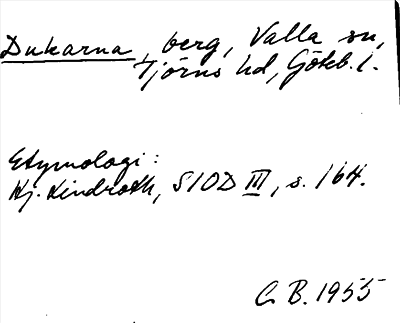 Dukarna, berg, Valla sn,
Tjörns hd, Göteb. l.
Etymologi:
Hj. Lindroth, SIOD III, s. 164.
C. B. 1955